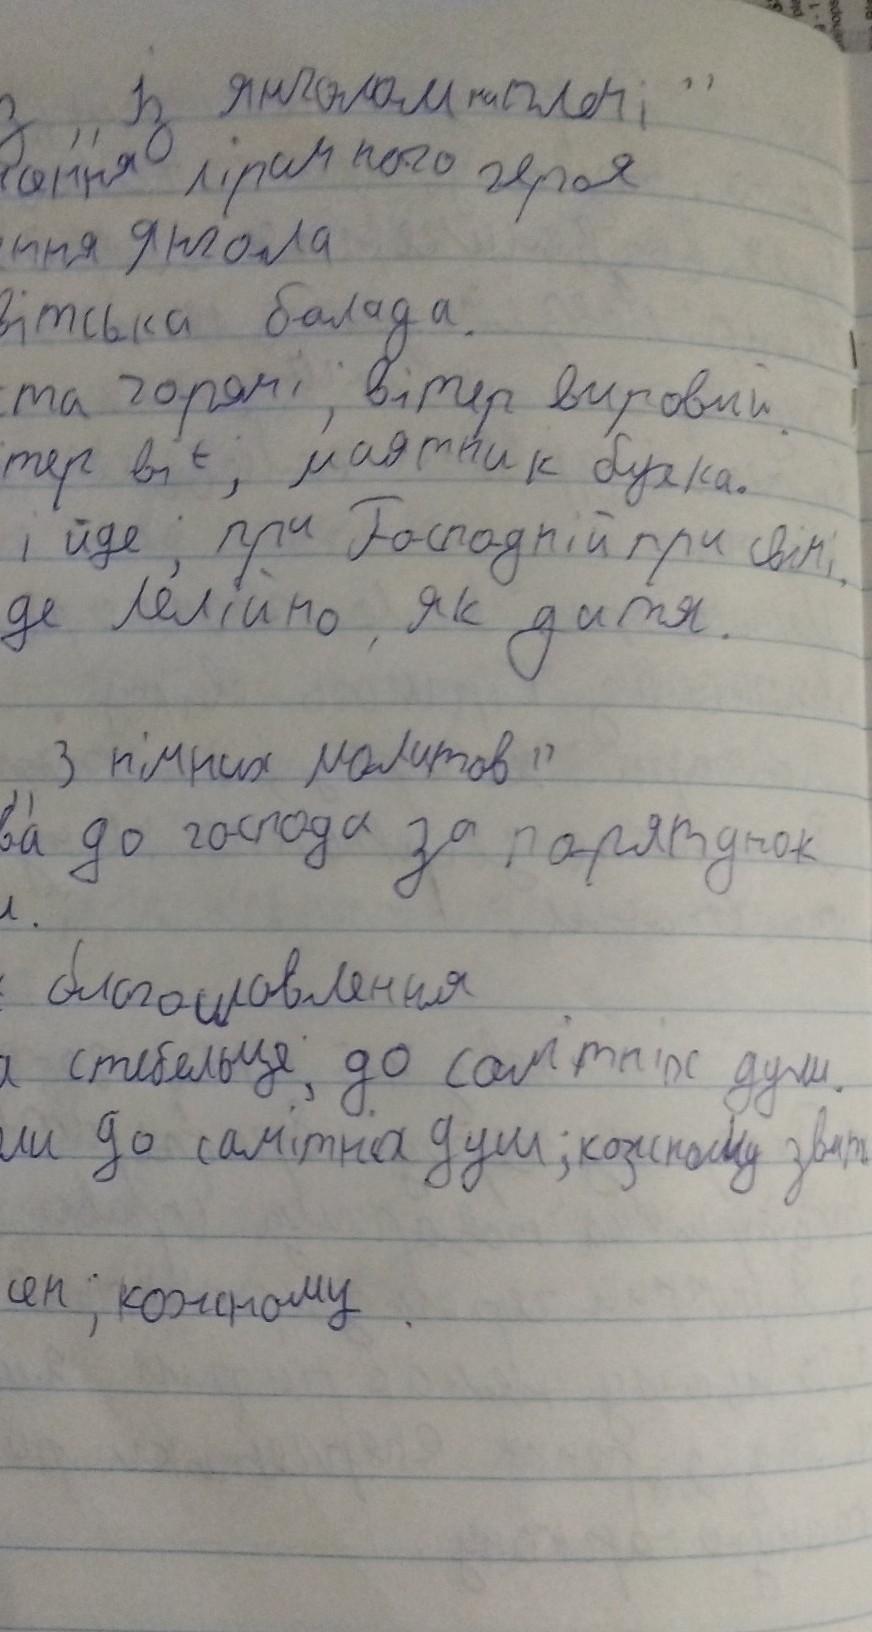 „Із янголом на плечі"
ліричного героя
ення янгола
вітська балада.
ста горячі; вітер вировий.
тер віє; маятник буяка.
і йде; при Господній при свічі,
де лелійно, як дитя.
„З німних молитов"
ва до господа за порятунок
и.
благословення
я стебельця; до самітніх душ.
ли до самітніх душ; кожному звить
сен; кожному.